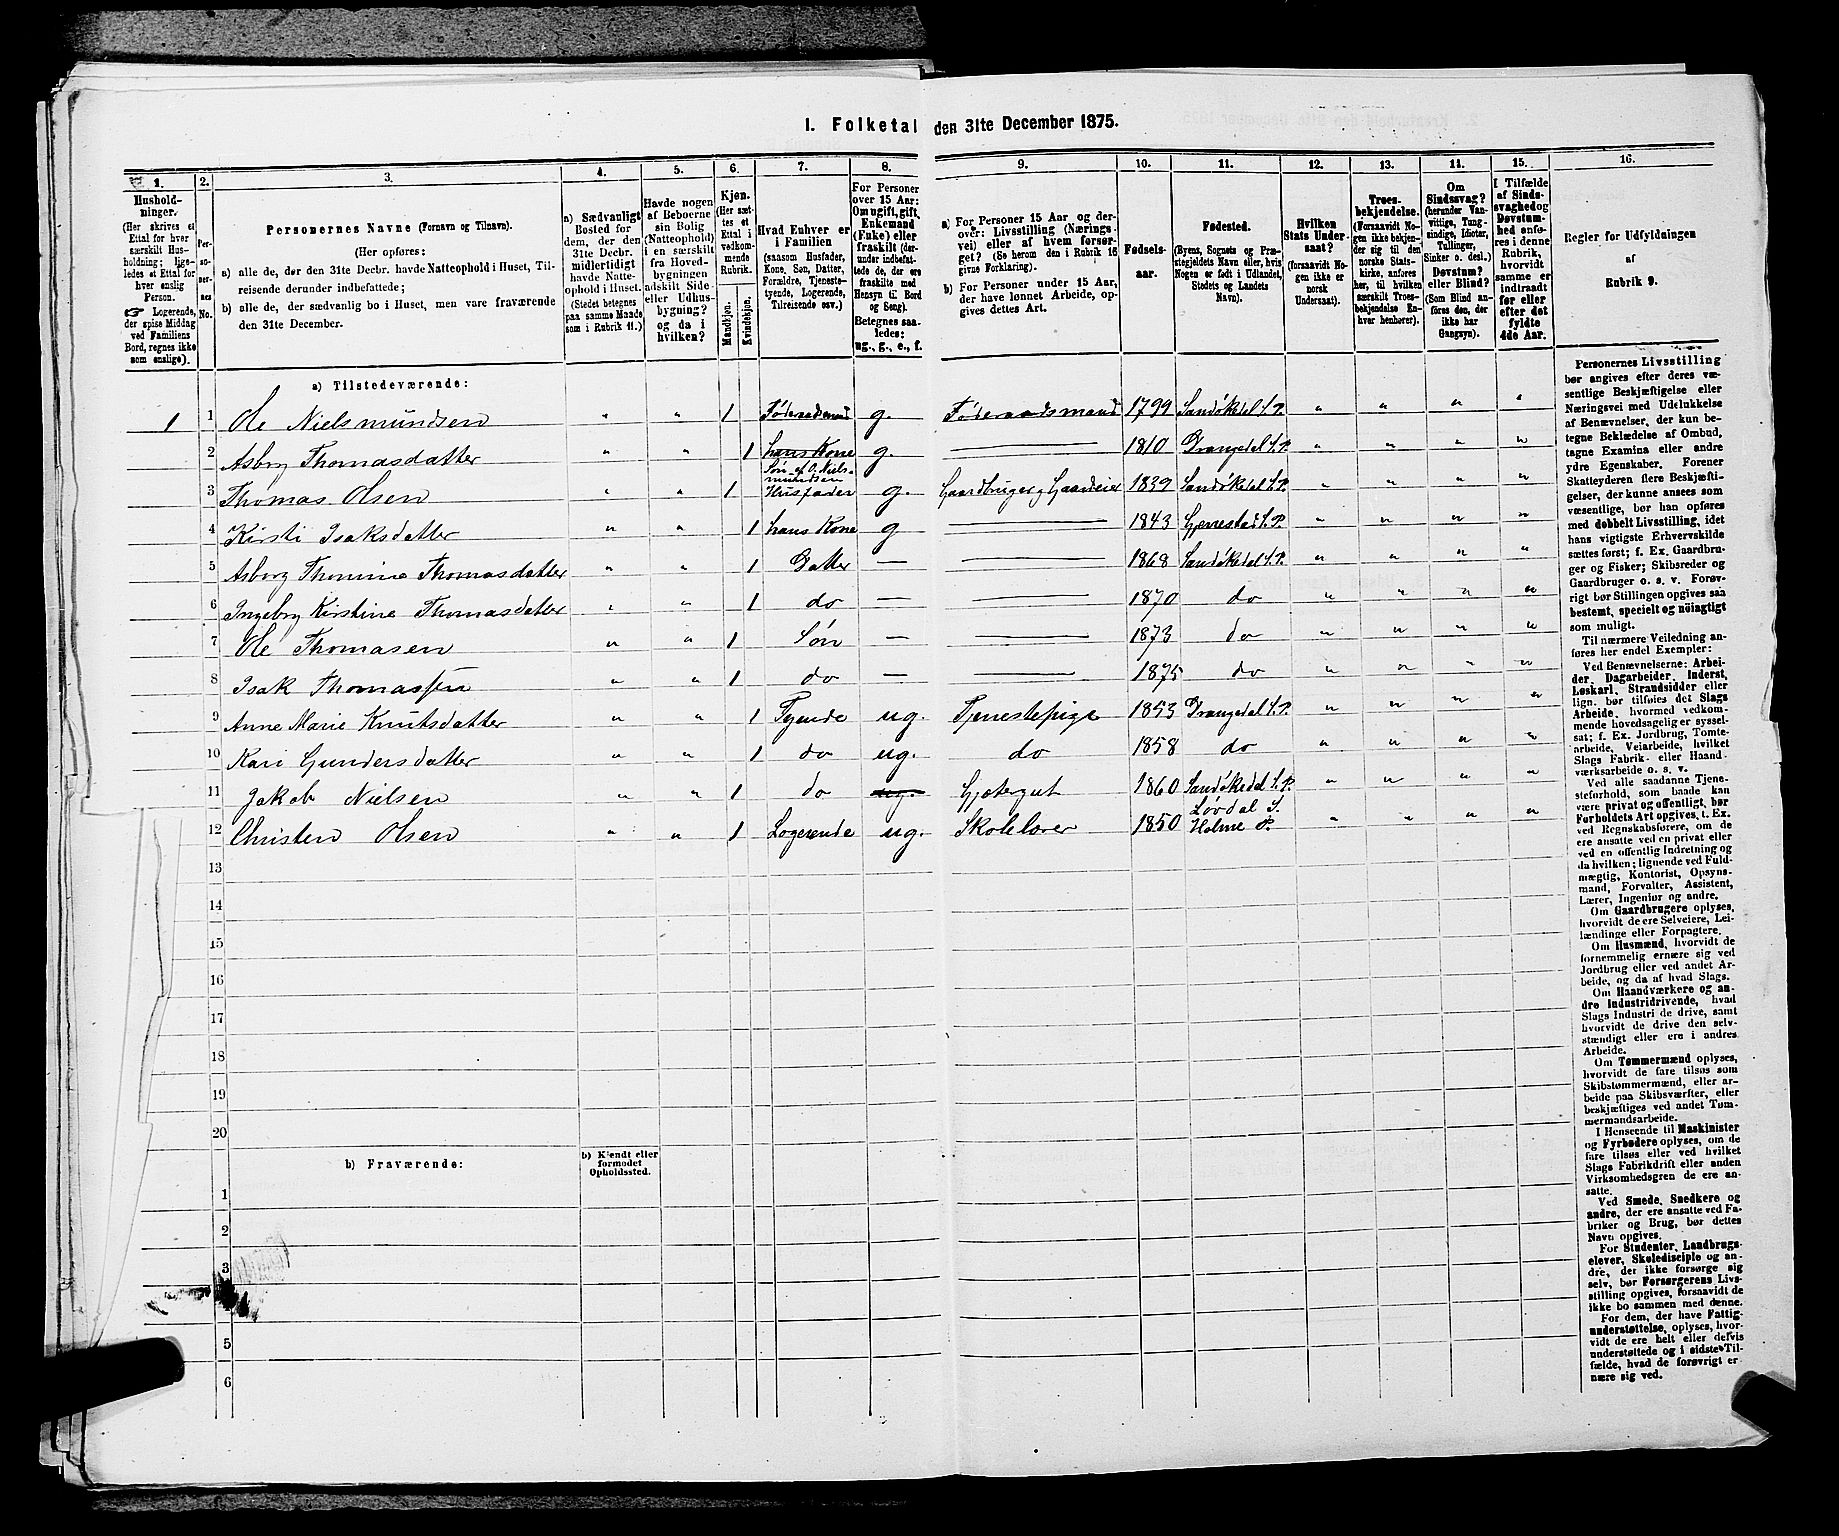 I. Folketal den 31te December 1875.
1. 2. 3. 4. 5. 6. 7. 8. 9. 10. 11. 12. 13. 14. 15. 16.
Hushold-
ninger.
(Her skrives et
Ettal for hver
særskilt Hus-
holdning; lige-
ledes et Ettal for
hver enslig
Person.
☞ Logerende,
der spise Middag
ved Familiens
Bord, regnes ikke
som enslige).
Per-
so-
ner-
nes
No.
Personernes Navne (Fornavn og Tilnavn).
(Her opføres:
a) alle de, der den 31te Decbr. havde Natteophold i Huset, Til-
reisende derunder indbefattede;
b) alle de, der sædvanlig bo i Huset, men vare fraværende
den 31te December.
a) Sædvanligt
Bosted for
dem, der den
31te Decbr.
midlertidigt
havde Natte-
ophold i Huset.
(Stedet betegnes
paa samme Maade
som i Rubrik 11.)
Havde nogen
af Beboerne
sin Bolig
(Natteophold)
i en særskilt
fra Hoved-
bygningen
adskilt Side-
eller Udhus-
bygning?
og da i
hvilken?
Kjøn.
(Her sæt-
tes et
Ettal i
vedkom-
mende
Rubrik.
Mandkjøn.
Kvindekjøn.
Hvad Enhver er
i Familien
(saasom Husfader,
Kone, Søn, Datter,
Forældre, Tjeneste-
tyende, Logerende,
Tilreisende osv.)
For Personer
over 15 Aar:
Om ugift, gift,
Enkemand
(Enke) eller
fraskilt (der-
under indbefat-
tede de, der ere
fraskilte med
Hensyn til Bord
og Seng).
Betegnes saa-
ledes:
ug., g., e., f.
a) For Personer 15 Aar og der-
over: Livsstilling (Nærings-
vei) eller af hvem forsør-
get? (Se herom den i Rubrik 16
givne Forklaring).
b) For Personer under 15 Aar,
der have lønnet Arbeide, op-
gives dettes Art.
Fødsels-
aar.
Fødested.
(Byens, Sognets og Præ-
stegjeldets Navn eller, hvis
Nogen er født i Udlandet,
Stedets og Landets
Navn).
Hvilken
Stats Under-
saat?
(forsaavidt No-
gen ikke er
norsk
Undersaat).
Troes-
bekjendelse.
(Forsaavidt No-
gen ikke bekjen-
der sig til den
norske Stats-
kirke, anføres
her, til hvilken
særskilt Troes-
bekjendelse En-
hver henhører).
Om
Sindssvag?
(herunder Van-
vittige, Tung-
sindige, Idioter,
Tullinger,
Sinker o. desl.)
Døvstum?
eller Blind?
(Som Blind an-
føres den, der
ikke har
Gangsyn).
I Tilfælde
af Sinds-
svaghed og
Døvstum-
hed anfø-
res i denne
Rubrik,
hvorvidt
samme er
indtraadt
før eller
efter det
fyldte
4de Aar.
Regler for Udfyldningen
af
Rubrik 9.
a) Tilstedeværende:
1 1 Ole Nielsmundsen " " 1 Føderaadsmand g. Føderaadsmand 1799 Sandøkedal S. P. " " " "
2 Asborg Thomasdatter " " 1 hans Kone g. 1810 Drangedal S. P. " " " "
Søn af O. Niels-
mundsen
3 Thomas Olsen " " 1 Husfader g. Gaardbruger, Gaardeier 1839 Sandøkedal S. P. " " " "
4 Kirsti Isaksdatter " " 1 hans Kone g 1843 Gjerrestad S. P. " " " "
5 Asborg Thomine Thomasdatter " " 1 Datter — 1868 Sandøkedal S. P. " " " "
6 Ingeborg Kirstine Thomasdatter " " 1 do — 1870 do " " " "
7 Ole Thomasen " " 1 Søn — 1873 do " " " "
8 Isak Thomassen " " 1 do — 1875 do " " " "
9 Anne Marie Knutsdatter " " 1 Tyende ug. Tjenestepige 1853 Drangedal S. P. " " " "
10 Kari Gundersdatter " " 1 do ug. do 1858 do " " " "
11 Jakob Nielsen " " 1 do ug. Gjætergut 1860 Sandøkedal S. P. " " " "
12 Christen Olsen " " 1 Logerende ug. Skolelærer 1850 Løvdal S.
Holme P. " " " "
13
14
15
16
17
18
19
20
b) Fraværende:
b) Kjendt eller
formodet
Opholdssted.
1
2
3
5
6
Personernes Livsstilling
bør angives efter deres væ-
sentlige Beskjæftigelse eller
Næringsvei med Udelukkelse
af Benævnelser, der kun be-
tegne Beklædelse af Ombud,
tagne Examina eller andre
ydre Egenskaber. Forener
Skatteyderen flere Beskjæfti-
gelser, der kunne ansees som
væsentlige, bør han opføres
med dobbelt Livsstilling, idet
hans vigtigste Erhvervskilde
sættes først; f. Ex. Gaardbru-
ger og Fisker; Skibsreder og
Gaardbruger o. s. v. Forøv-
rigt bør Stillingen opgives saa
bestemt, specielt og nöiagtigt
som muligt.
Til nærmere Veiledning an-
føres her endel Exempler:
Ved Benævnelserne: Arbei-
der, Dagarbeider, Inderst,
Løskarl, Strandsidder eller
lign. bør tilføies det Slags
Arbeide, hvormed vedkom-
mende hovedsagelig er syssel-
sat; f. Ex. Jordbrug, Tomte-
arbeide, Veiarbeide, hvilket
Slags Fabrik- eller Haand-
værksarbeide o. s. v.
Ved alle saadanne Tjene-
steforhold, som baade kan
være privat og offentligt, bør
Forholdets Art opgives, t. Ex.
ved Regnskabsførere, om de
ere ansatte ved en privat eller
ved en offentlig Indretning og
da hvilken; lignende ved Fuld-
mægtig, Kontorist, Opsyns-
mand, Forvalter, Assistent,
Lærer, Ingeniør og andre.
Om Gaardbrugere oplyses,
hvorvidt de ere Selveiere, Lei-
lændinge eller Forpagtere.
Om Husmænd, hvorvidt de
fornemmelig ernære sig ved
Jordbrug eller ved andet Ar-
beide, og da af hvad Slags.
Om Haandværkere og an-
dre Industridrivende, hvad
Slags Industri de drive, samt
hvorvidt de drive den selv-
stændigt eller ere i andres
Arbeide.
Om Tømmermænd oplyses,
hvorvidt de fare tilsøs som
Skibstømmermænd, eller ar-
beide paa Skibsværfter, eller
beskjæftiges ved andet Tøm-
mermandsarbeide.
I Henseende til Maskinister
og Fyrbødere oplyses, om de
fare tilsøs eller ved hvilket
Slags Fabrikdrift eller anden
Virksomhedsgren de ere an-
satte.
Ved Smede, Snedkere og
andre, der ere ansatte ved Fa-
briker og Brug, bør dettes
Navn opgives.
For Studenter, Landbrugs-
elever, Skoledisciple og an-
dre, der ikke forsørge sig
selv, bør Forsørgerens Livs-
stilling opgives, forsaavidt de
ikke bo sammen med denne.
For dem, der have Fattig-
understøttelse, oplyses, hvor-
vidt de ere helt eller delvis
understøttede og i sidste Til-
fælde, hvad de forøvrigt er-
nære sig ved.